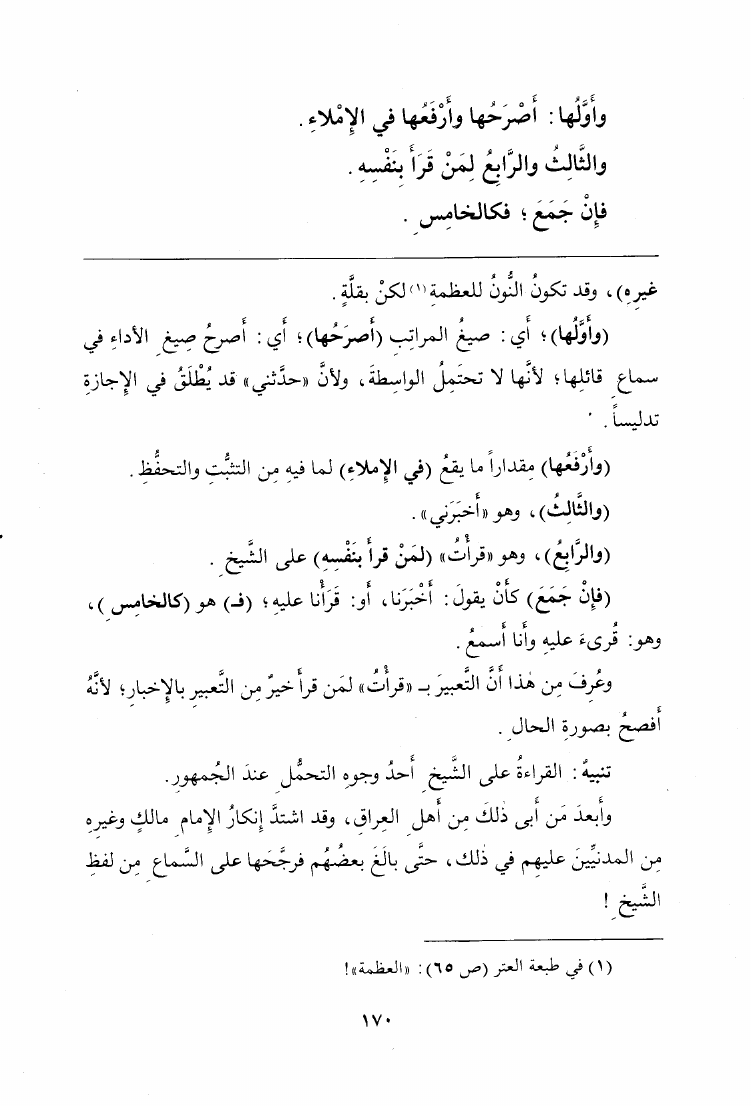 وأَوَّلُها: أَصْرَحُها وأَرْفَعُها في الإِمْلاءِ.
والثَّالِثُ والرَّابِعُ لِمَنْ قَرَأَ بِنَفْسِهِ.
فإِنْ جَمَعَ؛ فكالخامِسِ.
غيرِهِ)، وقد تكونُ النُّونُ للعظمةِ(١) لكنْ بقلَّةٍ.
(وأَوَّلُها)؛ أَي: صيغُ المراتِبِ (أَصرَحُها)؛ أَي: أَصرحُ صِيغِ الأداءِ في
سماعِ قائلِها؛ لأنَّها لا تحتَمِلُ الواسِطةَ، ولأنَّ «حدَّثني» قد يُطْلَقُ في الإِجازةِ
تدليساً.
(وأَرْفَعُها) مِقداراً ما يقعُ (في الإِملاءِ) لما فيهِ مِن التثبُّتِ والتحفُّظِ.
(والثَّالِثُ)، وهو «أَخبَرَني».
(والرَّابِعُ)، وهو «قرأْتُ» (لمَنْ قرأَ بنَفْسِهِ) على الشَّيخِ.
(فإِنْ جَمَعَ) كأَنْ يقولَ: أَخْبَرَنا، أَو: قَرَأْنا عليهِ؛ (فـ) هو (كالخامِسِ)،
وهو: قُرىءَ عليهِ وأَنا أَسمعُ.
وعُرِفَ مِن هٰذا أَنَّ التَّعبيرَ بـ «قرأْتُ» لمَن قرأَ خيرٌ مِن التَّعبيرِ بالإِخبارِ؛ لأنَّهُ
أَفصحُ بصورةِ الحالِ.
تنبيهٌ: القراءةُ على الشَّيخِ أَحدُ وجوهِ التحمُّلِ عندَ الجُمهورِ.
وأَبعدَ مَن أَبى ذٰلكَ مِن أَهلِ العِراقِ، وقد اشتدَّ إِنكارُ الإِمامِ مالكٍ وغيرِهِ
مِن المدنيِّينَ عليهم في ذٰلك، حتَّى بالَغَ بعضُهُم فرجَّحَها على السَّماعِ مِن لفظِ
الشَّيخِ!
(١) في طبعة العتر (ص ٦٥): «العظمة»!
١٧٠